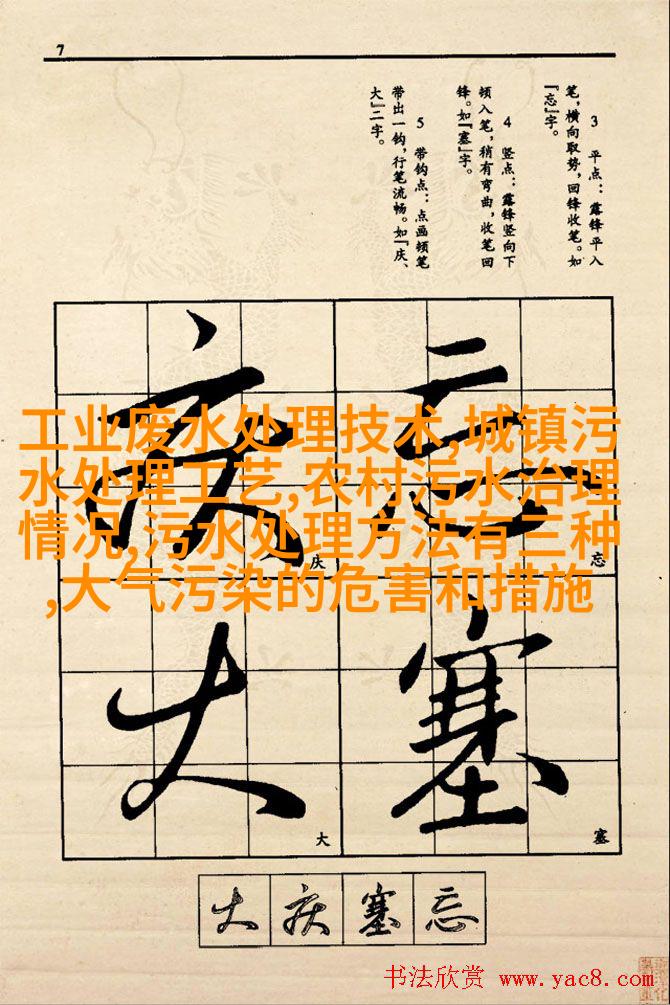 7
3 平点：露锋平入
笔，横向取势，回锋收笔。如
『忘』字。
4 竖点：露锋竖向下
顿入笔，稍有弯曲，收笔回
锋。如『塞』字。
5 带钩点：点画顿笔
带出一钩，行笔流畅。如『庆、
大』二字。
工业废水处理技术,城镇污
水处理工艺,农村污水治理
情况,污水处理方法有三种
,大气污染的危害和措施
忘
忘
塞
塞
庆
庆
大
大
大 庆 塞 忘
书法欣赏 www.yac8.com